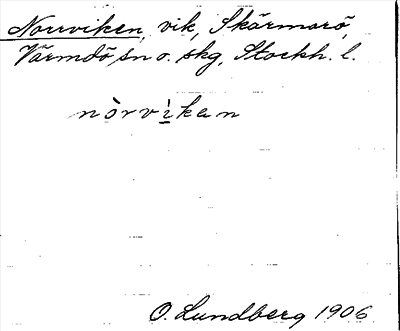 Norrviken, vik, Skärmarö,
Värmdö sn o. skg, Stockh. l.
nòrvìkan
O. Lundberg 1906